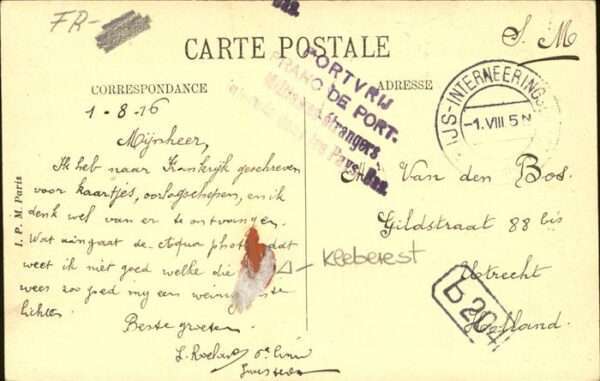 FR-
S. M
CARTE POSTALE
PORTVRIJ
FRANC DE PORT.
Militaires étrangers
internés dans les Pays-Bas.
CORRESPONDANCE
ADRESSE
IJS-INTERNEERINGS
-1.VIII 5N
1-8-16
Mijnheer,
Ik heb naar Frankrijk geschreven
voor kaartjes, oorlogschepen, en ik
denk wel van er te ontvangen.
Wat aangaat de Aqua photo dat
weet ik niet goed welke die
wees zoo goed mij een weinig
lichten.
Beste groeten
Van den Bos.
Gildstraat 88 bis
Utrecht
Holland.
kleberest
b 204
I. P. M. Paris